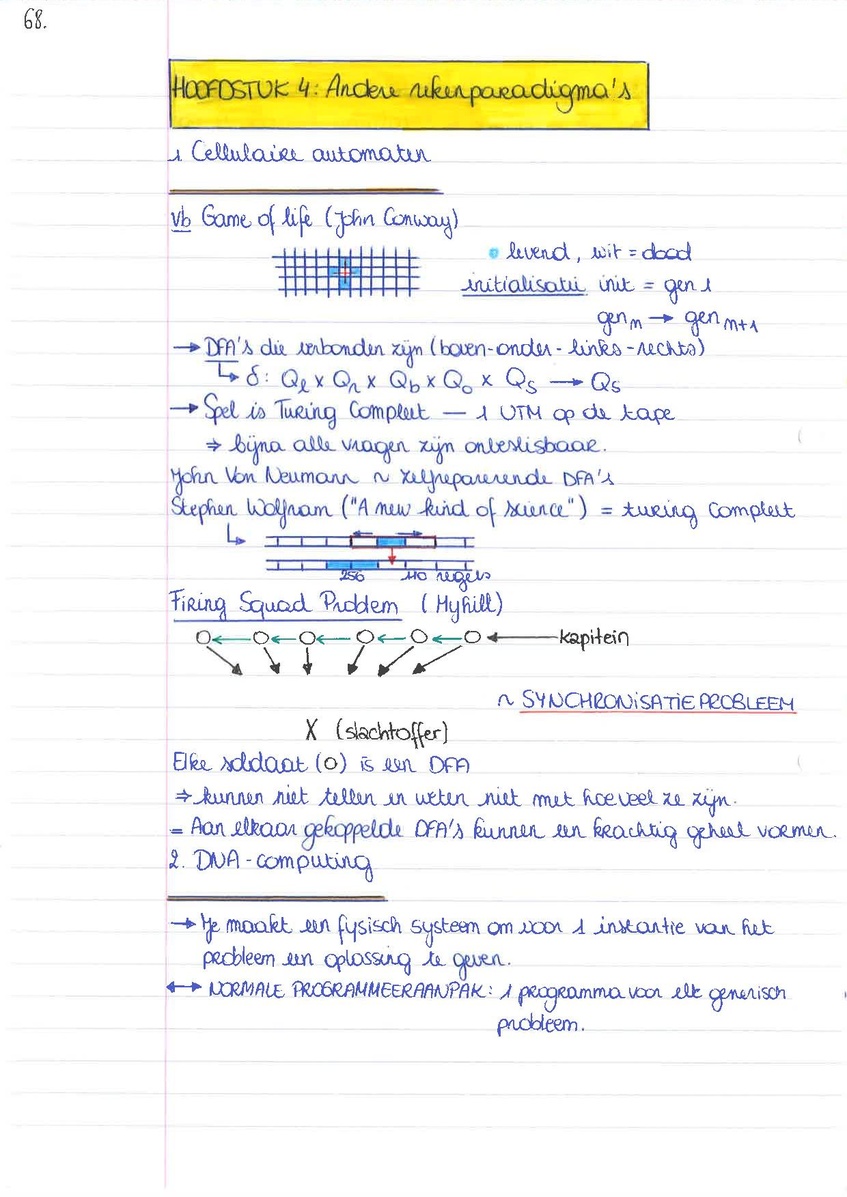 68.
HOOFDSTUK 4: Andere rekenparadigma's
1 Cellulaire automaten
vb Game of life (John Conway)
levend, wit = dood
initialisatie init = gen 1
gen_m → gen_m+1
→ DFA's die verbonden zijn (boven-onder-links-rechts)
↳ δ: Q_l x Q_r x Q_b x Q_o x Q_s → Q_s
→ Spel is Turing Compleet — 1 UTM op de tape
⇒ bijna alle vragen zijn onbeslisbaar.
John Von Neumann ~ zelfreparerende DFA's
Stephen Wolfram ("A new kind of science") = turing compleet
256 110 regels
Firing Squad Problem (Myhill)
kapitein
~ SYNCHRONISATIEPROBLEEM
X (slachtoffer)
Elke soldaat (O) is een DFA
⇒ kunnen niet tellen en weten niet met hoeveel ze zijn.
= Aan elkaar gekoppelde DFA's kunnen een krachtig geheel vormen.
2. DNA-computing
→ Je maakt een fysisch systeem om voor 1 instantie van het
probleem een oplossing te geven.
↔ NORMALE PROGRAMMEERAANPAK: 1 programma voor elk generisch
probleem.